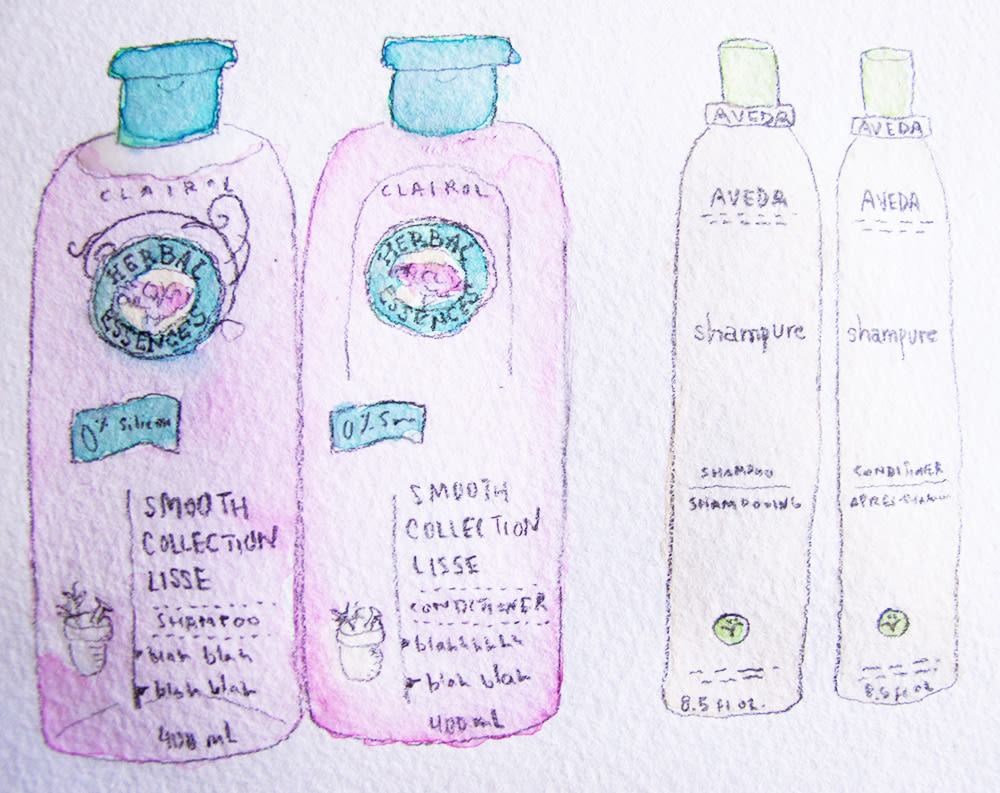 CLAIROL
HERBAL
ESSENCES
0% Silicon
SMOOTH
COLLECTION
LISSE
SHAMPOO
blah blah
blah blah
400 mL
CLAIROL
HERBAL
ESSENCES
0%
SMOOTH
COLLECTION
LISSE
CONDITIONER
blah blah
400 mL
AVEDA
AVEDA
shampure
SHAMPOO
SHAMPOOING
8.5 fl oz.
AVEDA
AVEDA
shampure
CONDITIONER
8.5 fl oz